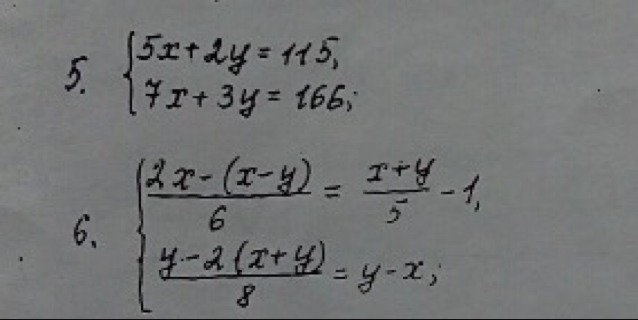 5. { 5x+2y=115,
7x+3y=166;
6. { (2x-(x-y))/6 = (x+y)/5 -1,
(y-2(x+y))/8 = y-x;